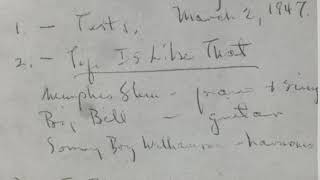 1. – Tests, March 2, 1947.
2. – Life Is Like That
Memphis Slim – piano & sing
Big Bill – guitar
Sonny Boy Williamson – harmonic